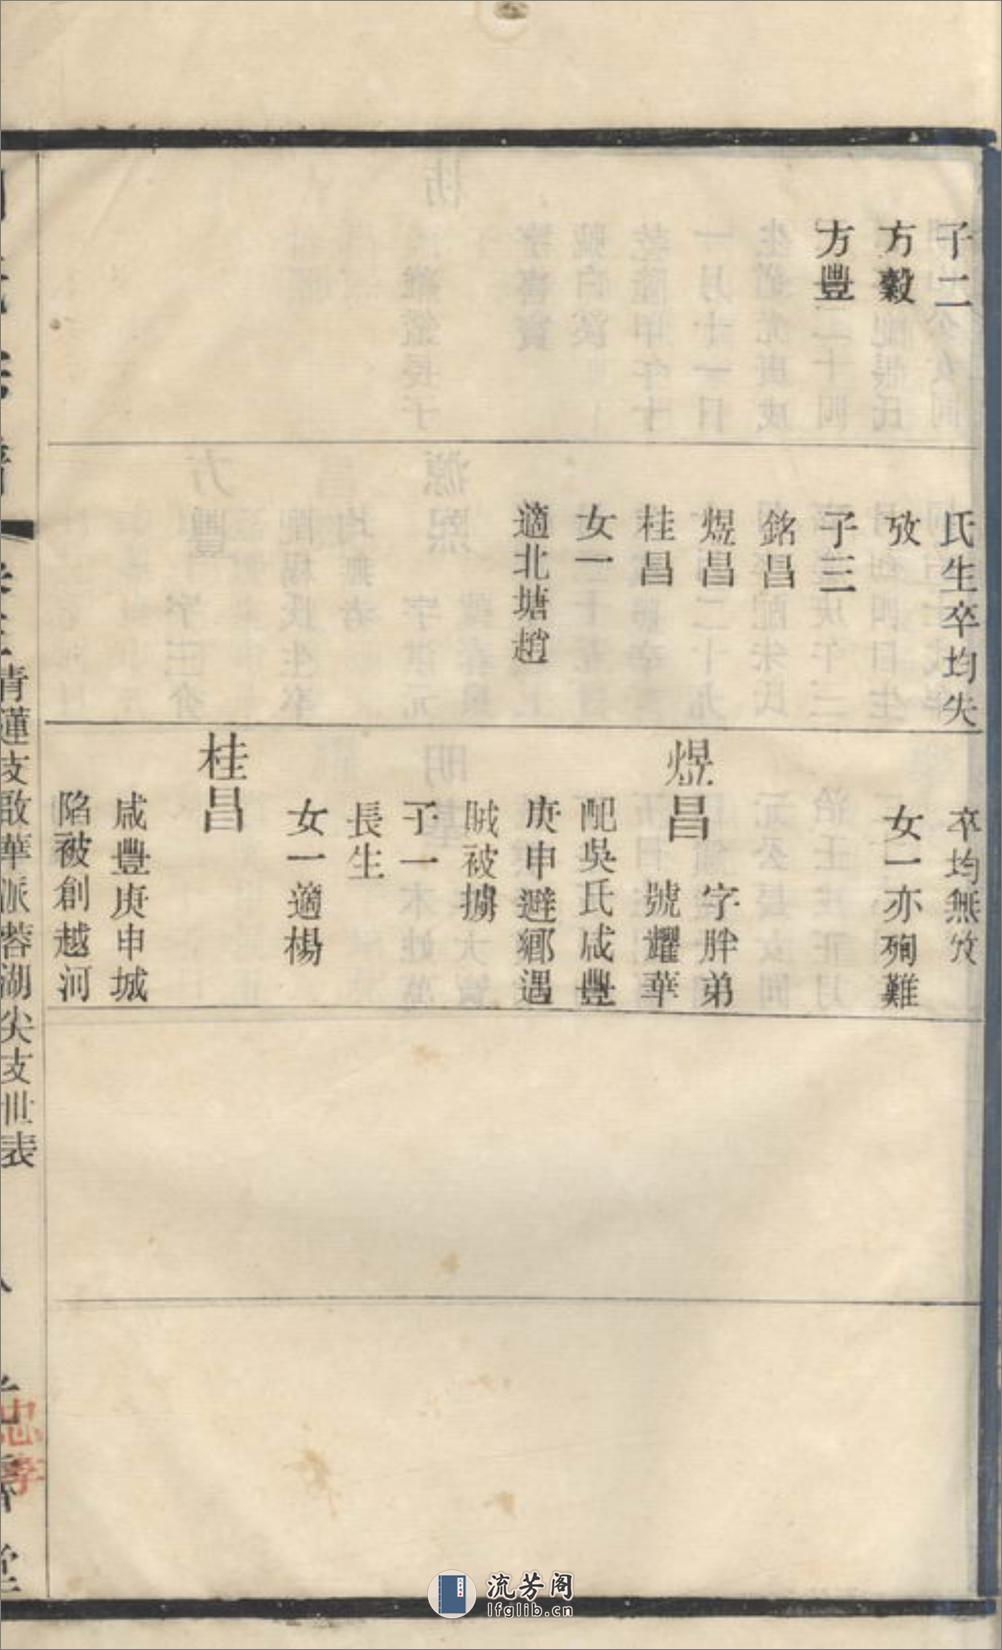 子二
方穀
方豐
氏生卒均失
攷
子三
銘昌
煜昌
桂昌
女一
適北塘趙
卒均無攷
女一亦殉難
煜昌
字胖弟
號耀華
配吳氏咸豐
庚申避鄉遇
賊被擄
子一
長生
女一適楊
桂昌
咸豐庚申城
陷被創越河
青蓮支啟華派蓉湖尖支世表
忠孝
流芳阁
lfglib.cn